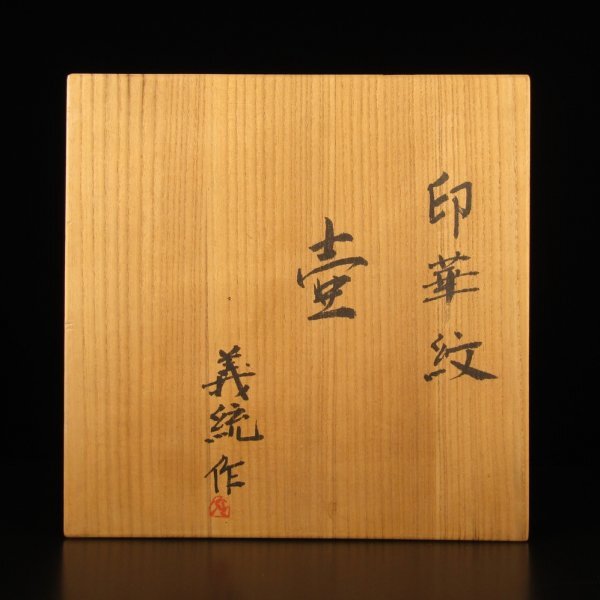 印華紋
壺
義統作